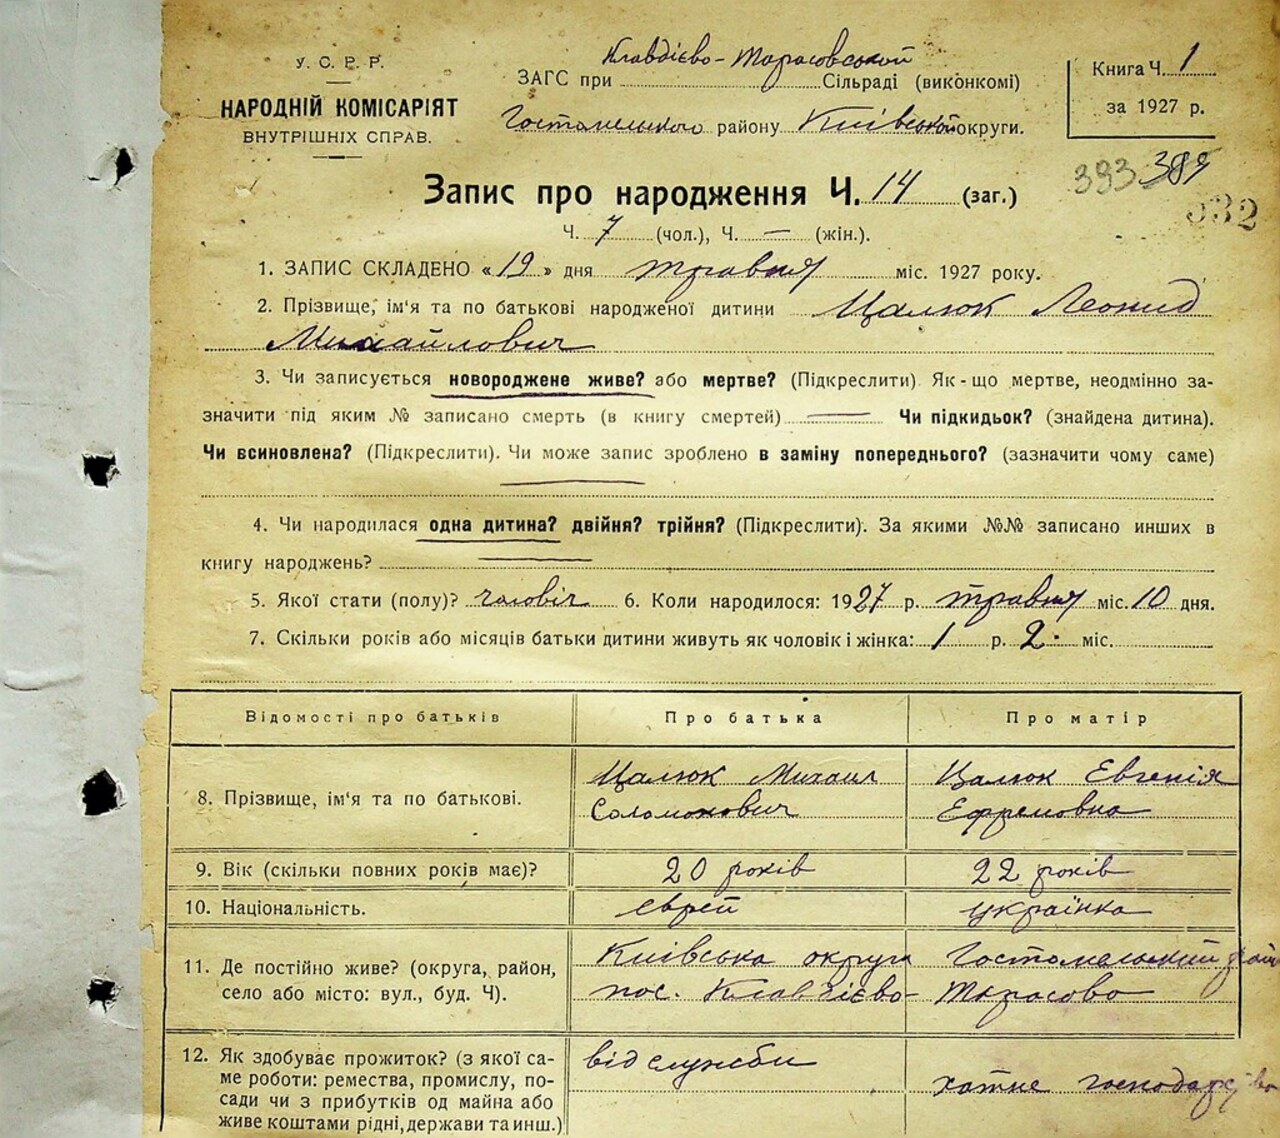 У. С. Р. Р.
НАРОДНІЙ КОМІСАРІЯТ
ВНУТРІШНІХ СПРАВ.
Клавдієво-Тарасовський
ЗАГС при Сільраді (виконкомі)
Гостомельського району Київської округи.
Книга Ч. 1
за 1927 р.
393 389
532
Запис про народження Ч. 14 (заг.)
Ч. 7 (чол.), Ч. — (жін.).
1. ЗАПИС СКЛАДЕНО «19» дня травня міс. 1927 року.
2. Прізвище, ім'я та по батькові народженої дитини Цалюк Леонид
Михайлович
3. Чи записується новороджене живе? або мертве? (Підкреслити). Як-що мертве, неодмінно за-
значити під яким № записано смерть (в книгу смертей) — Чи підкидьок? (знайдена дитина).
Чи всиновлена? (Підкреслити). Чи може запис зроблено в заміну попереднього? (зазначити чому саме)
4. Чи народилася одна дитина? двійня? трійня? (Підкреслити). За якими №№ записано инших в
книгу народжень? —
5. Якої стати (полу)? чоловіч. 6. Коли народилося: 1927 р. травня міс. 10 дня.
7. Скільки років або місяців батьки дитини живуть як чоловік і жінка: 1 р. 2 міс.
Відомості про батьків Про батька Про матір
8. Прізвище, ім'я та по батькові. Цалюк Михаил Соломонович Цалюк Евгенія Ефремовна
9. Вік (скільки повних років має)? 20 років 22 років
10. Національність. еврей українка
11. Де постійно живе? (округа, район, Київська округа Гостомельський район
село або місто: вул., буд. Ч). пос. Клавдієво-Тарасово
12. Як здобуває прожиток? (з якої са- від служби
ме роботи: ремества, промислу, по- хатне господарство
сади чи з прибутків од майна або
живе коштами рідні, держави та инш.)